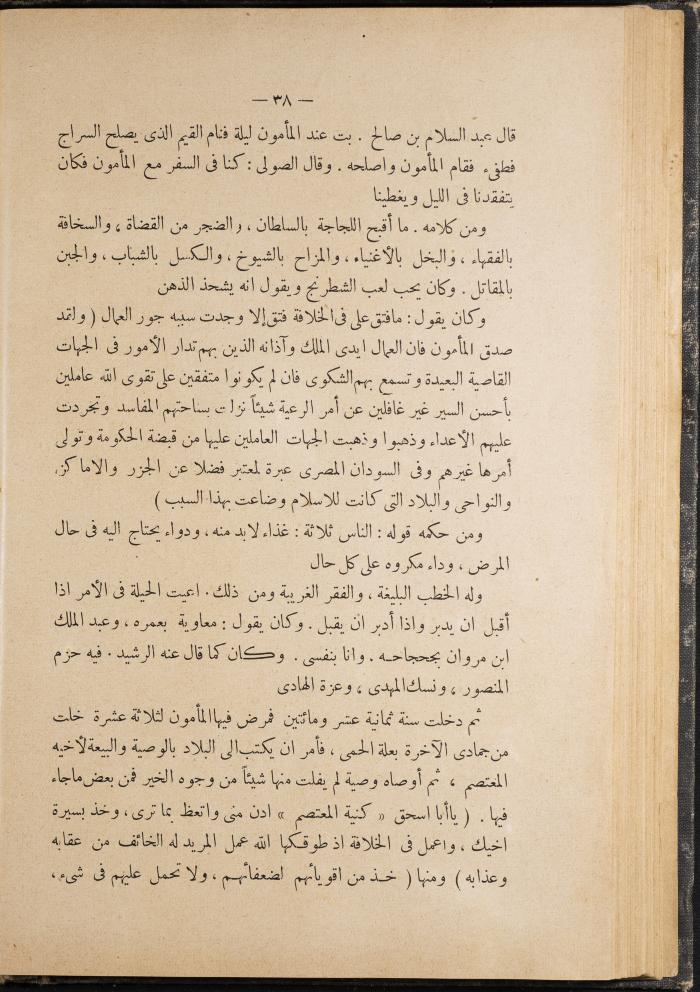 — ٣٨ —
قال عبد السلام بن صالح . بت عند المأمون ليلة فنام القيم الذى يصلح السراج
فطفىء فقام المأمون واصلحه . وقال الصولى : كنا فى السفر مع المأمون فكان
يتفقدنا فى الليل ويغطينا
ومن كلامه . ما أقبح اللجاجة بالسلطان ، والضجر من القضاة ، والسخافة
بالفقهاء ، والبخل بالأغنياء ، والمزاح بالشيوخ ، والكسل بالشباب ، والجبن
بالمقاتل . وكان يحب لعب الشطرنج ويقول انه يشحذ الذهن
وكان يقول : مافتق على فى الخلافة فتق إلا وجدت سببه جور العمال ( ولقد
صدق المأمون فان العمال ايدى الملك وآذانه الذين بهم تدار الأمور فى الجهات
القاصية البعيدة وتسمع بهم الشكوى فان لم يكونوا متفقين على تقوى الله عاملين
بأحسن السير غير غافلين عن أمر الرعية شيئاً نزلت بساحتهم المفاسد وتجردت
عليهم الأعداء وذهبوا وذهبت الجهات العاملين عليها من قبضة الحكومة وتولى
أمرها غيرهم وفى السودان المصرى عبرة لمعتبر فضلا عن الجزر والاماكن
والنواحى والبلاد التى كانت للاسلام وضاعت بهذا السبب )
ومن حكمه قوله : الناس ثلاثة : غذاء لابد منه ، ودواء يحتاج اليه فى حال
المرض ، وداء مكروه على كل حال
وله الخطب البليغة ، والفقر الغريبة ومن ذلك . اعيت الحيلة فى الأمر اذا
أقبل ان يدبر واذا أدبر ان يقبل . وكان يقول : معاوية بعمره ، وعبد الملك
ابن مروان بحجاجه . وانا بنفسى . وكان كما قال عنه الرشيد . فيه حزم
المنصور ، ونسك المهدى ، وعزة الهادى
ثم دخلت سنة ثمانية عشر ومائتين فمرض فيها المأمون لثلاثة عشرة خلت
من جمادى الآخرة بعلة الحمى ، فأمر ان يكتب الى البلاد بالوصية والبيعة لأخيه
المعتصم ، ثم أوصاه وصية لم يفلت منها شيئاً من وجوه الخير فمن بعض ماجاء
فيها . ( ياأبا اسحق « كنية المعتصم » ادن منى واتعظ بما ترى ، وخذ بسيرة
اخيك ، واعمل فى الخلافة اذ طوقكها الله عمل المريد له الخائف من عقابه
وعذابه ) ومنها ( خذ من اقويائهم لضعفائهم ، ولا تحمل عليهم فى شىء ،